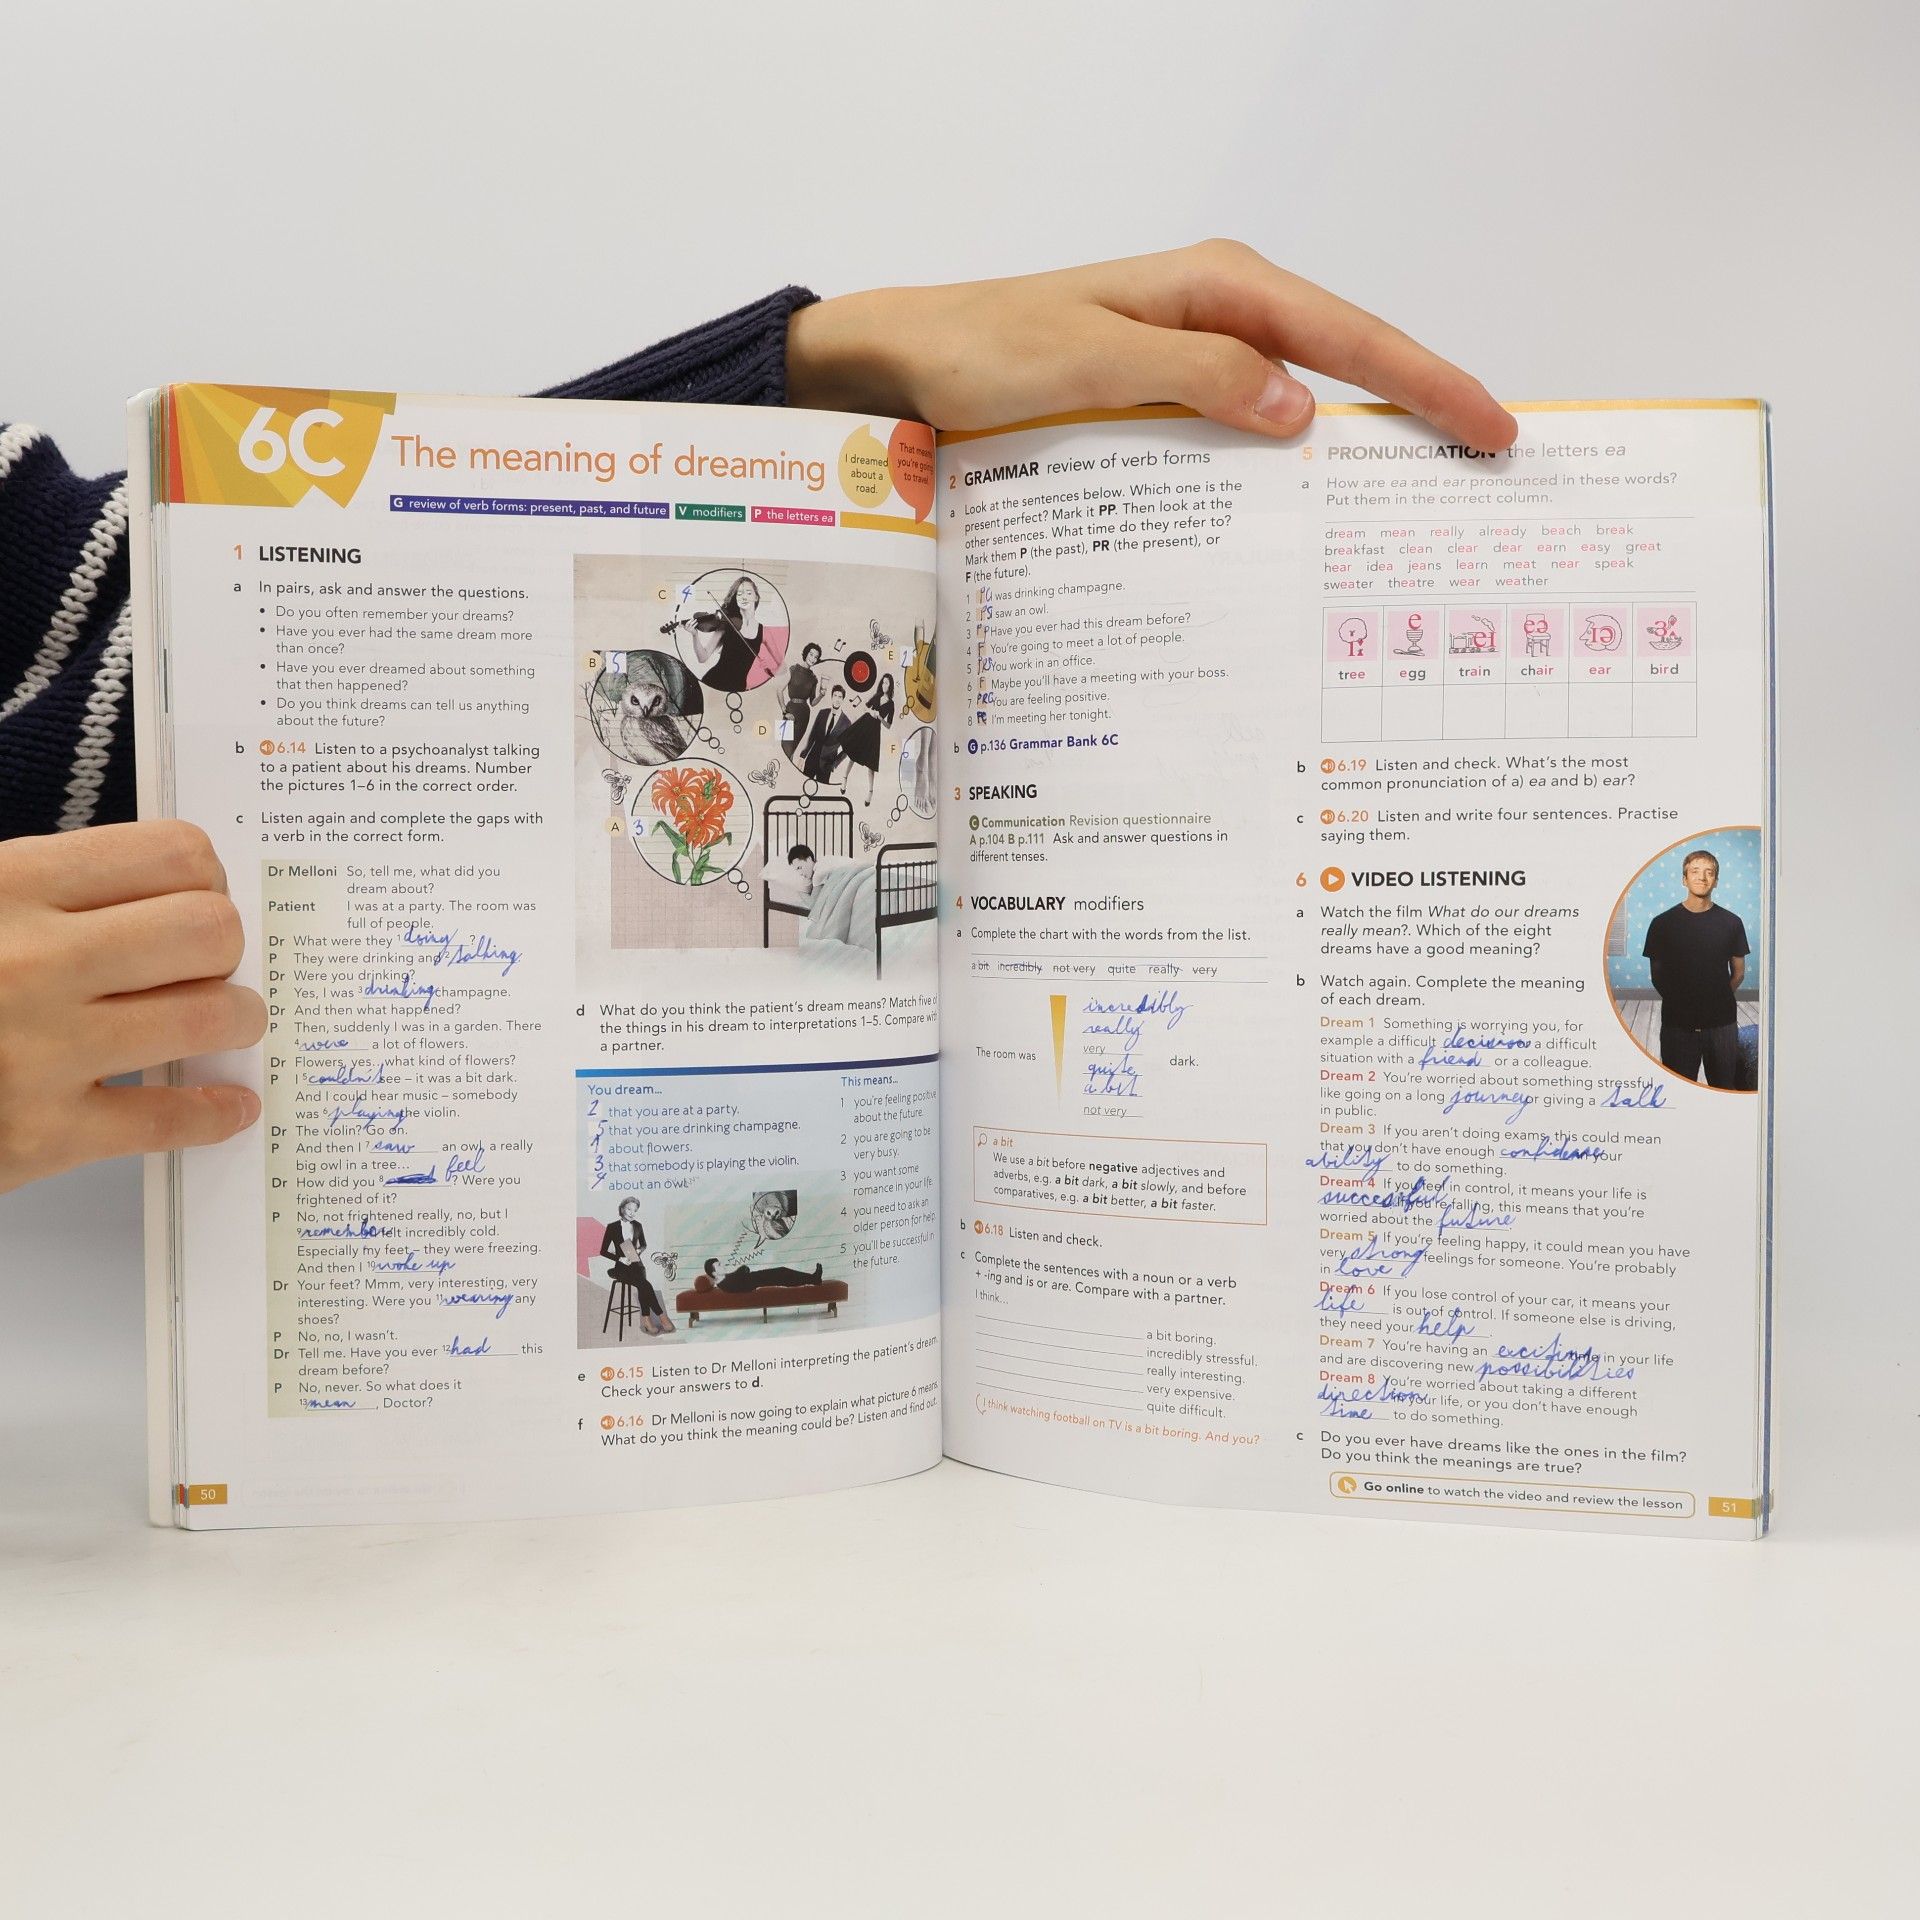 6C
The meaning of dreaming
I dreamed
about a
road.
That means
you're going
to travel.
G review of verb forms: present, past, and future V modifiers P the letters ea
1 LISTENING
a In pairs, ask and answer the questions.
• Do you often remember your dreams?
• Have you ever had the same dream more
than once?
• Have you ever dreamed about something
that then happened?
• Do you think dreams can tell us anything
about the future?
b 6.14 Listen to a psychoanalyst talking
to a patient about his dreams. Number
the pictures 1–6 in the correct order.
c Listen again and complete the gaps with
a verb in the correct form.
Dr Melloni So, tell me, what did you
dream about?
Patient I was at a party. The room was
full of people.
Dr What were they 1 doing ?
P They were drinking and 2 talking.
Dr Were you drinking?
P Yes, I was 3 drinking champagne.
Dr And then what happened?
P Then, suddenly I was in a garden. There
4 were a lot of flowers.
Dr Flowers, yes...what kind of flowers?
P I 5 couldn't see – it was a bit dark.
And I could hear music – somebody
was 6 playing the violin.
Dr The violin? Go on.
P And then I 7 saw an owl, a really
big owl in a tree...
Dr How did you 8 feel ? Were you
frightened of it?
P No, not frightened really, no, but I
9 remember felt incredibly cold.
Especially my feet – they were freezing.
And then I 10 woke up
Dr Your feet? Mmm, very interesting, very
interesting. Were you 11 wearing any
shoes?
P No, no, I wasn't.
Dr Tell me. Have you ever 12 had this
dream before?
P No, never. So what does it
13 mean , Doctor?
50
C 4
B 5
E 2
D 1
F 6
A 3
d What do you think the patient's dream means? Match five of
the things in his dream to interpretations 1–5. Compare with
a partner.
You dream...
2 that you are at a party.
5 that you are drinking champagne.
1 about flowers.
3 that somebody is playing the violin.
4 about an owl.
This means...
1 you're feeling positive
about the future.
2 you are going to be
very busy.
3 you want some
romance in your life.
4 you need to ask an
older person for help.
5 you'll be successful in
the future.
e 6.15 Listen to Dr Melloni interpreting the patient's dream.
Check your answers to d.
f 6.16 Dr Melloni is now going to explain what picture 6 means.
What do you think the meaning could be? Listen and find out.
2 GRAMMAR review of verb forms
a Look at the sentences below. Which one is the
present perfect? Mark it PP. Then look at the
other sentences. What time do they refer to?
Mark them P (the past), PR (the present), or
F (the future).
1 I was drinking champagne.
2 PS I saw an owl.
3 PP Have you ever had this dream before?
4 F You're going to meet a lot of people.
5 PRS You work in an office.
6 F Maybe you'll have a meeting with your boss.
7 PRC You are feeling positive.
8 I'm meeting her tonight.
b G p.136 Grammar Bank 6C
3 SPEAKING
C Communication Revision questionnaire
A p.104 B p.111 Ask and answer questions in
different tenses.
4 VOCABULARY modifiers
a Complete the chart with the words from the list.
a bit incredibly not very quite really very
The room was
incredibly
really
very
quite
a bit
not very
dark.
a bit
We use a bit before negative adjectives and
adverbs, e.g. a bit dark, a bit slowly, and before
comparatives, e.g. a bit better, a bit faster.
b 6.18 Listen and check.
c Complete the sentences with a noun or a verb
+ -ing and is or are. Compare with a partner.
I think...
a bit boring.
incredibly stressful.
really interesting.
very expensive.
quite difficult.
I think watching football on TV is a bit boring. And you?
5 PRONUNCIATION the letters ea
a How are ea and ear pronounced in these words?
Put them in the correct column.
dream mean really already beach break
breakfast clean clear dear earn easy great
hear idea jeans learn meat near speak
sweater theatre wear weather
iː e eɪ eə ɪə ɜː
tree egg train chair ear bird
b 6.19 Listen and check. What's the most
common pronunciation of a) ea and b) ear?
c 6.20 Listen and write four sentences. Practise
saying them.
6 VIDEO LISTENING
a Watch the film What do our dreams
really mean?. Which of the eight
dreams have a good meaning?
b Watch again. Complete the meaning
of each dream.
Dream 1 Something is worrying you, for
example a difficult decision a difficult
situation with a friend or a colleague.
Dream 2 You're worried about something stressful,
like going on a long journey or giving a talk
in public.
Dream 3 If you aren't doing exams, this could mean
that you don't have enough confidence your
ability to do something.
Dream 4 If you feel in control, it means your life is
succesful If you're falling, this means that you're
worried about the future
Dream 5 If you're feeling happy, it could mean you have
very strong feelings for someone. You're probably
in love
Dream 6 If you lose control of your car, it means your
life is out of control. If someone else is driving,
they need your help .
Dream 7 You're having an exciting time in your life
and are discovering new possibilities
Dream 8 You're worried about taking a different
direction in your life, or you don't have enough
time to do something.
c Do you ever have dreams like the ones in the film?
Do you think the meanings are true?
Go online to watch the video and review the lesson
51